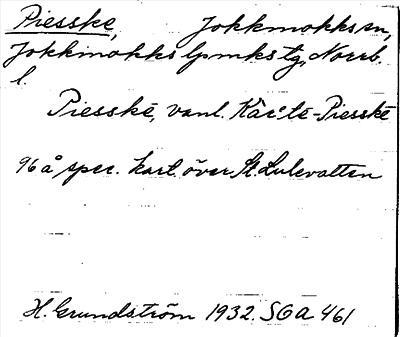 Piesske, Jokkmokks sn,
Jokkmokks lpmks tg, Norrb.
l.
Piesskē, vanl. Kār'te-Piesskē
96 å spec. kart. över St. Lulevatten
H. Grundström 1932. SOA 461